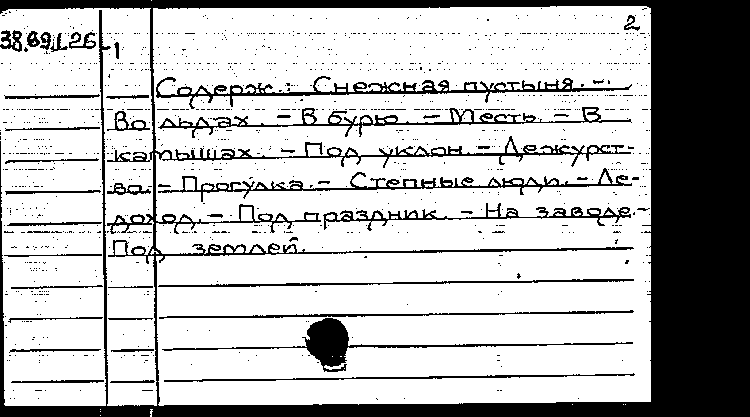 2
38.69.1.26-1
Содерж.: Снежная пустыня. -
Во льдах. - В бурю. - Месть. - В
камышах. - Под уклон. - Дежурст-
во. - Прогулка. - Степные люди. - Ле-
доход. - Под праздник. - На заводе. -
Под землей.